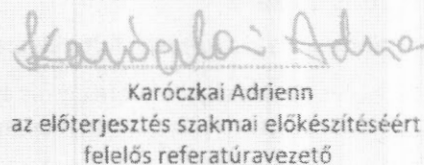 Karóczkai Adrienn
az előterjesztés szakmai előkészítéséért
felelős referatúravezető